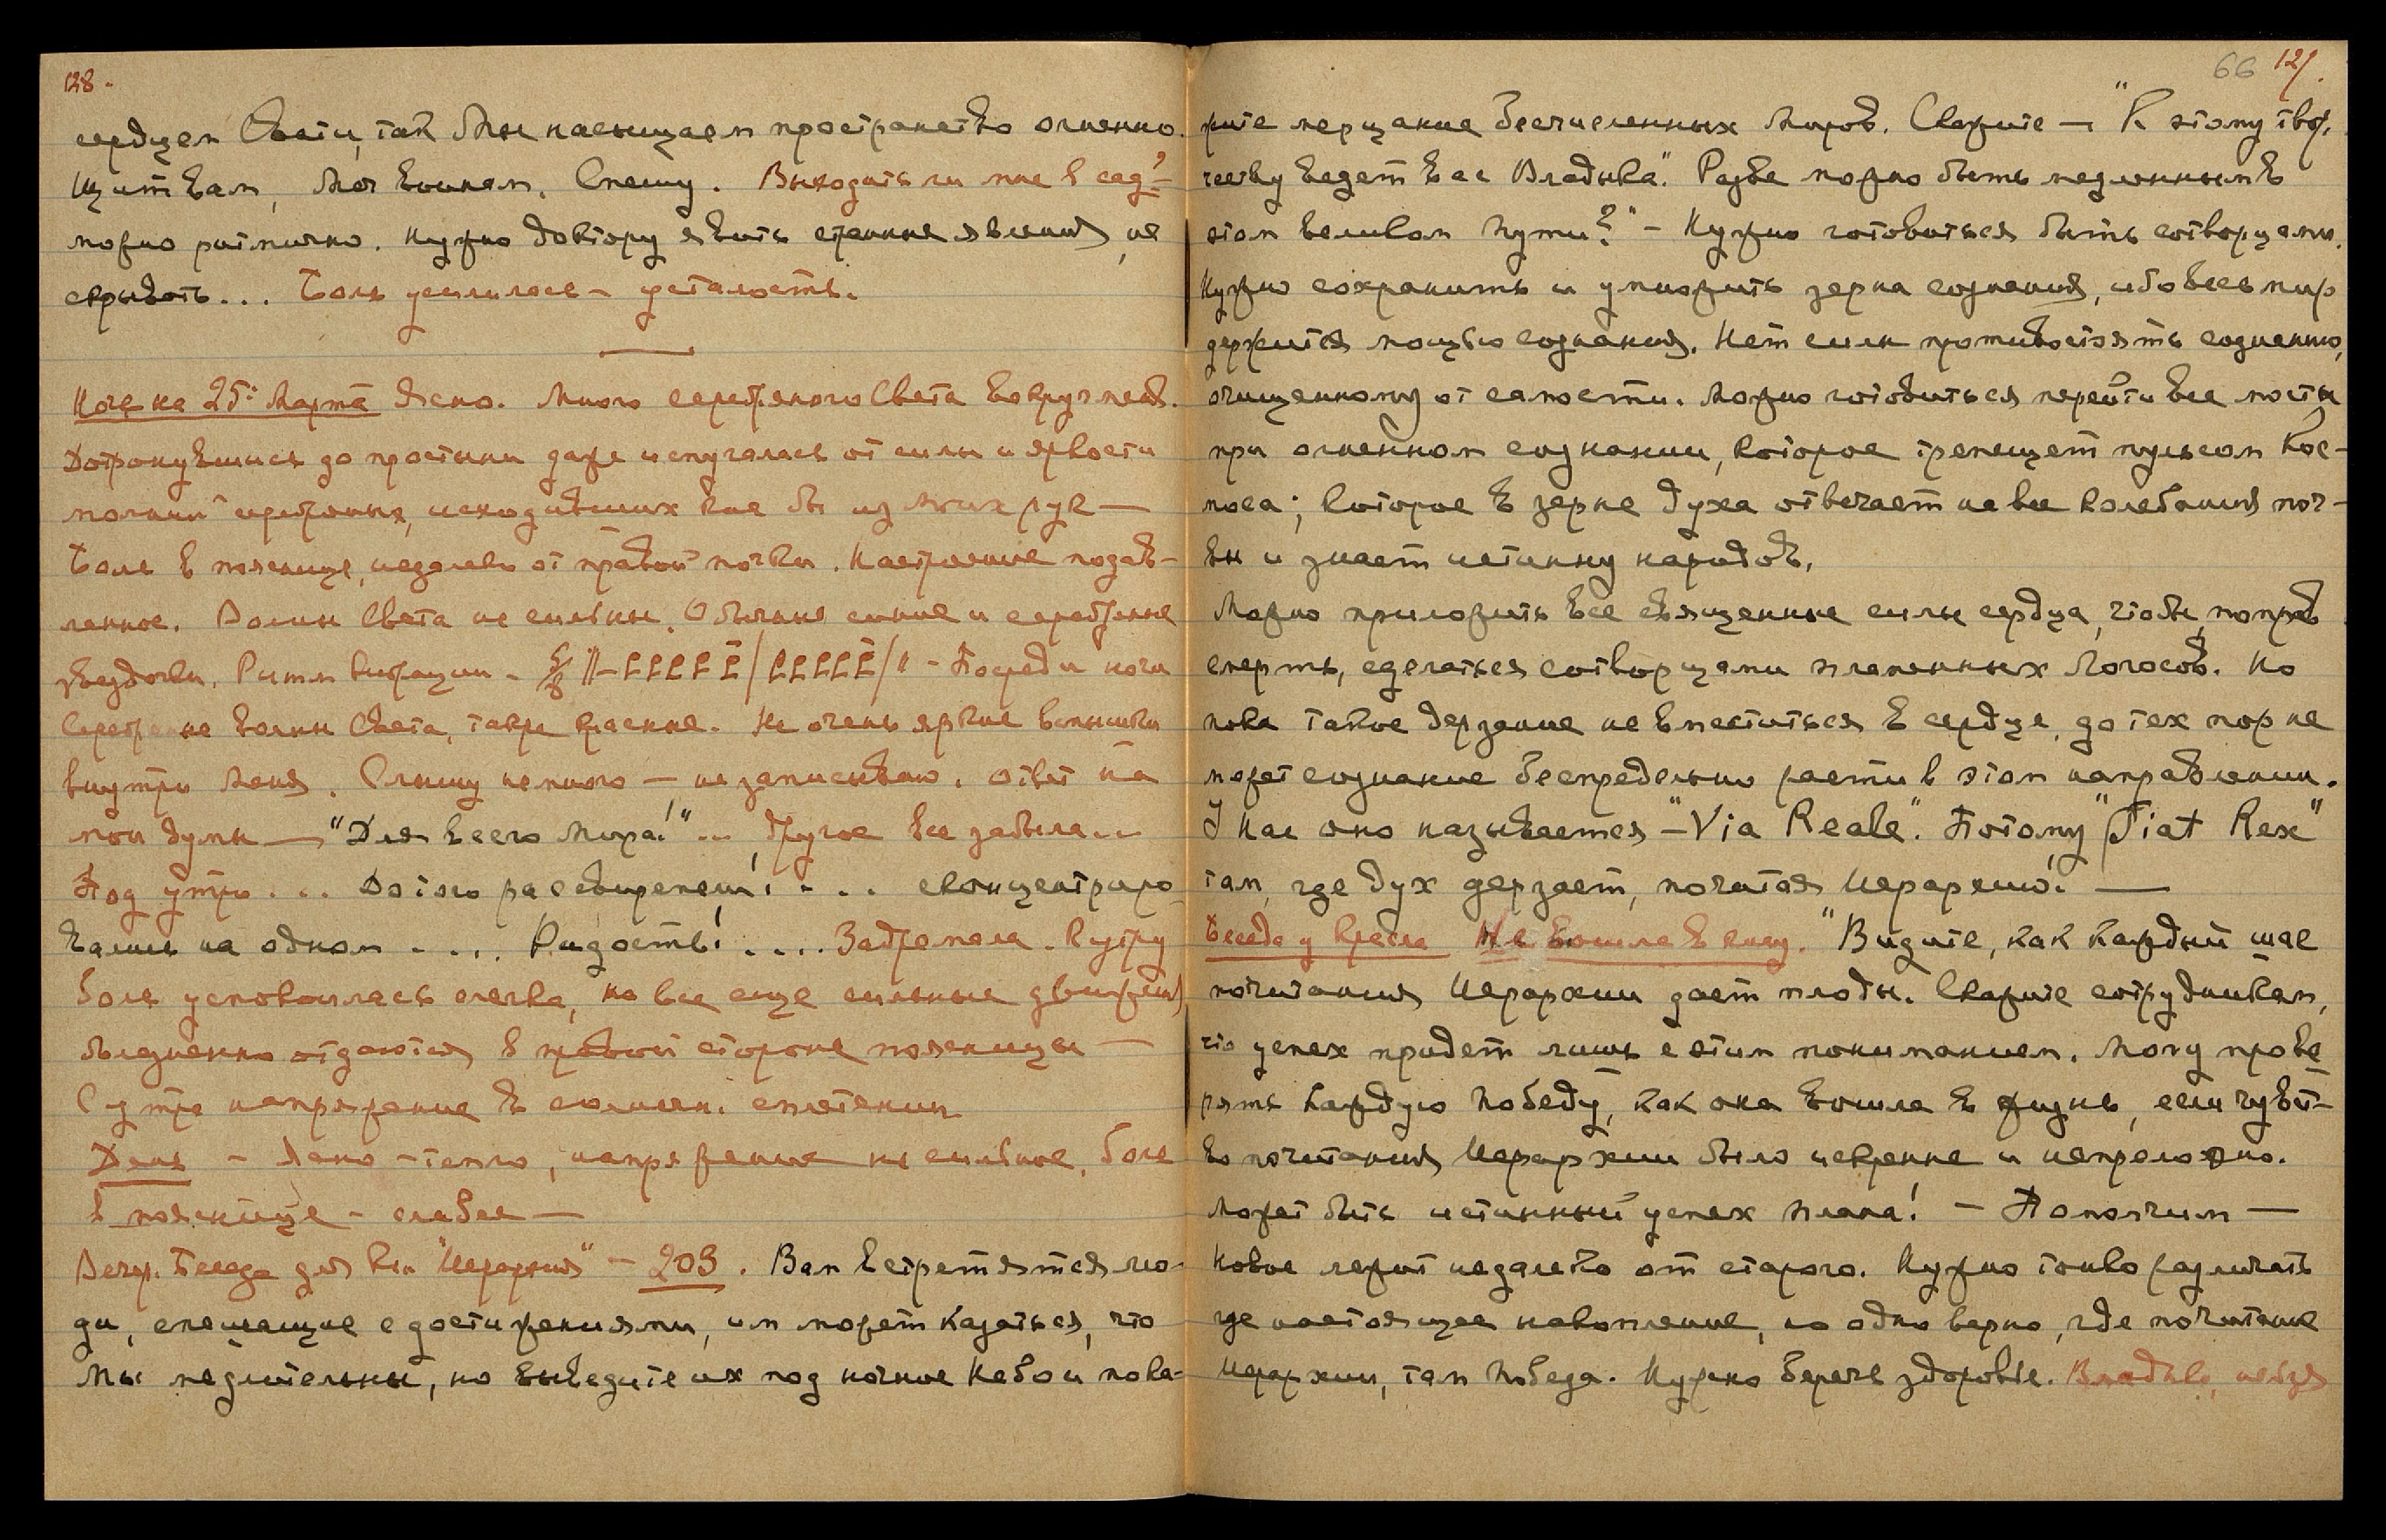 128.
сердцем Свети, так Мы насыщаем пространство огненно.
Щит вам, Мои воинам. Спешу. Выходить ли мне в сад?-
можно ритмично. Нужно доктору явить странные явления, не
скрывать... Боль усилилась – усталость.
Ночь на 25: Марта Ясно. Много серебряного Света вокруг меня.
Дотронувшись до простыни даже испугалась от силы и яркости
молний серебряных, исходивших как бы из моих рук —
Боль в пояснице, недалеко от правой почки. Настроение подав-
ленное. Волны Света не сильны. Обычные синие и серебряные
звездочки. Ритм Посреди ночи
Серебряные волны Света, также красные. Не очень яркие вспышки
внутри меня. Слышу немного — не записываю. Ответ на
мои думы — "Для всего Мира!"... Другое все забыла...
Под утро... До того рассвирепел!.... сконцентриро-
вались на одном.... Радость!.... Задремала. К утру
боль успокоилась слегка, но все еще сильные движения
болезненно отдаются в правой стороне поясницы —
С утра напряжение в солнечн. сплетении
День – Ясно – тепло, напряжение не сильное, боль
в пояснице – слабее —
Вечер. Беседа для кн. "Иерархия" – 203. Вам встретятся лю-
ди, спешащие с достижениями, им может казаться, что
Мы медлительны, но выведите их под ночное Небо и пока-
66 129.
жите мерцание бесчисленных Миров. Скажите – "К этому твор-
честву ведет вас Владыка". Разве можно быть медленным в
этом великом Пути?" – Нужно готовиться быть сотворцами.
Нужно сохранить и умножить зерна сознания, ибо весь мир
держится мощью сознания. Нет силы противостоять сознанию,
очищенному от самости. Можно готовиться перейти все мосты
при огненном сознании, которое трепещет пульсом Кос-
моса; которое в зерне духа отвечает на все колебания поч-
вы и знает истину народов.
Можно приложить все священные силы сердца, чтобы, поправ
смерть, сделаться сотворцами пламенных Логосов. Но
пока такое дерзание не вместиться в сердце, до тех пор не
может сознание беспредельно расти в этом направлении.
У нас оно называется – "Via Reale". Потому "Fiat Rex"
там, где дух дерзает, почитая Иерархию! —
Беседа у Кресла Не вошла в книгу. "Видите, как каждый шаг
почитания Иерархии дает плоды. Скажите сотрудникам,
что успех придет лишь с этим пониманием. Могу прове-
рять каждую победу, как она вошла в жизнь, если чувст-
во почитания Иерархии было искренне и непреложно.
Может быть истинный успех плана! – Помолчим —
Новое лежит недалеко от старого. Нужно тонко различать
где настоящее накопление, но одно верно, где почитание
Иерархии, там победа. Нужно беречь здоровье. Владыко, нельзя